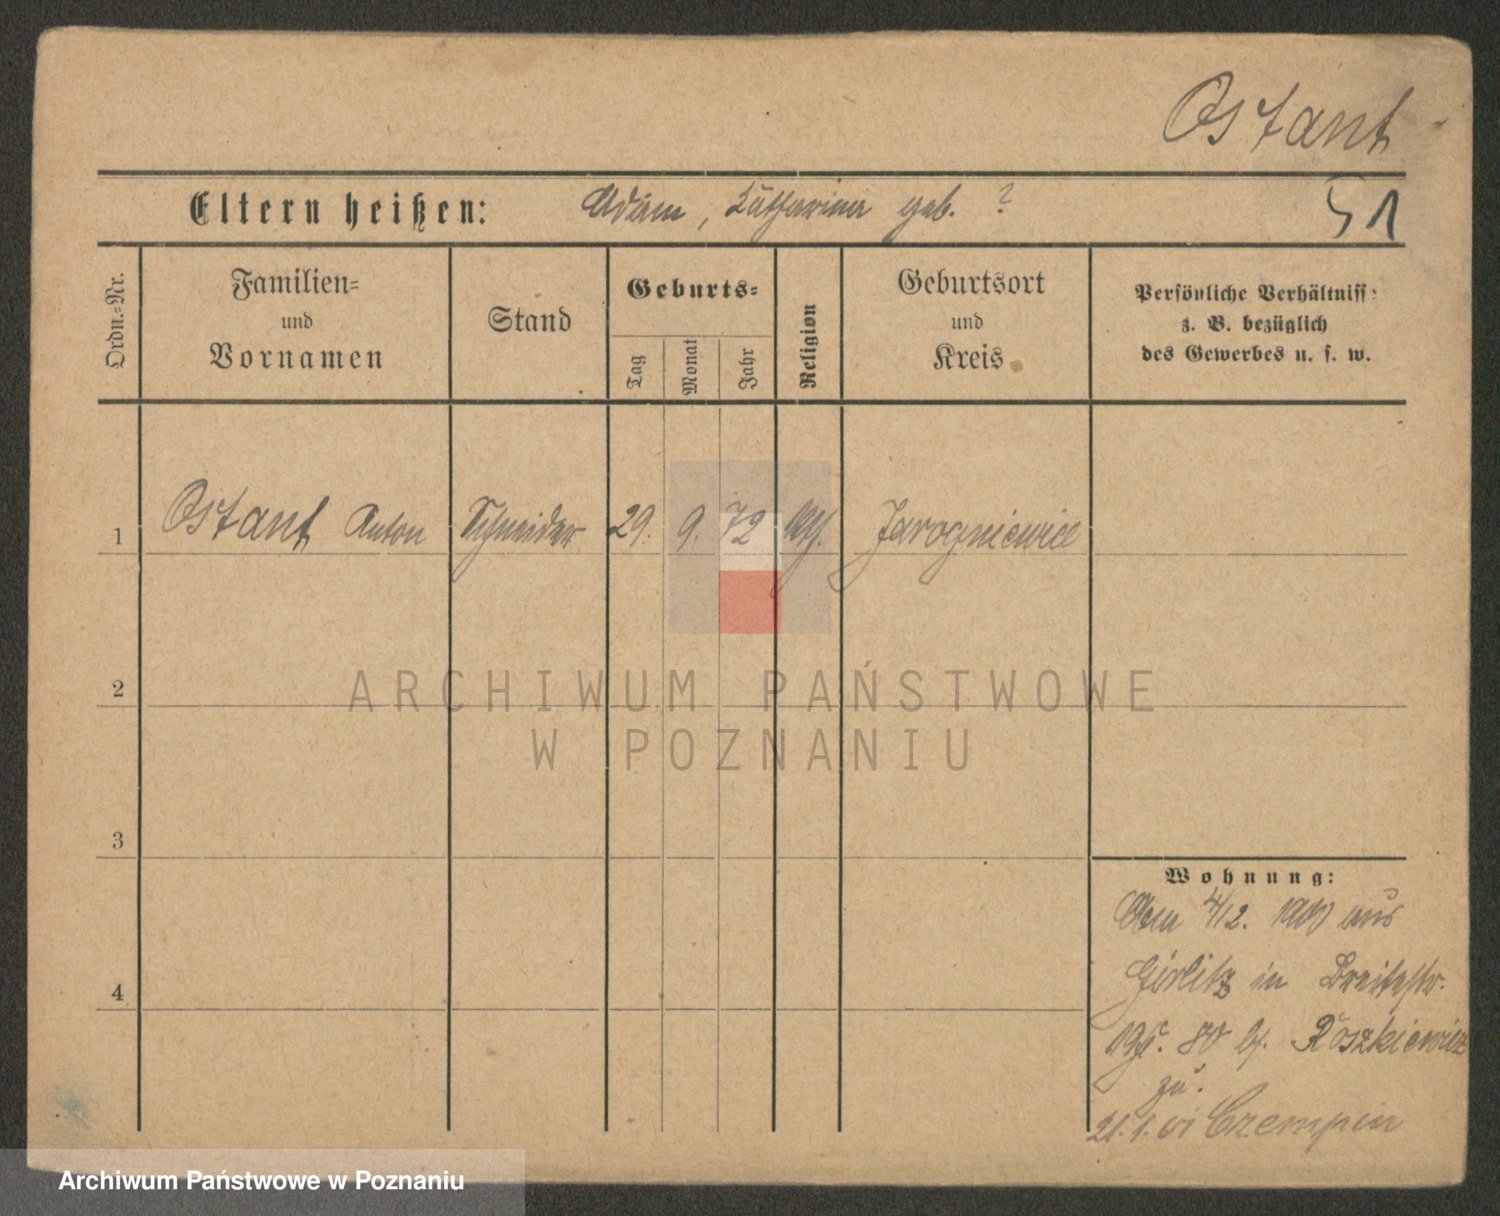 Ostant
Eltern heißen: Adam, Katharina geb. ?
51
Ordn.-Nr.
Familien-
und
Vornamen
Stand
Geburts-
Tag
Monat
Jahr
Religion
Geburtsort
und
Kreis
Persönliche Verhältniss
z. B. bezüglich
des Gewerbes u. s. w.
1 Ostant Anton Schneider 29. 9. 72 kth. Jarogniewice
2
3
4
Wohnung:
4/12. aus
Görlitz in Breitestr.
b/. Roszkiewicz
zu.
21.1. Czempin
ARCHIWUM PAŃSTWOWE
W POZNANIU
Archiwum Państwowe w Poznaniu